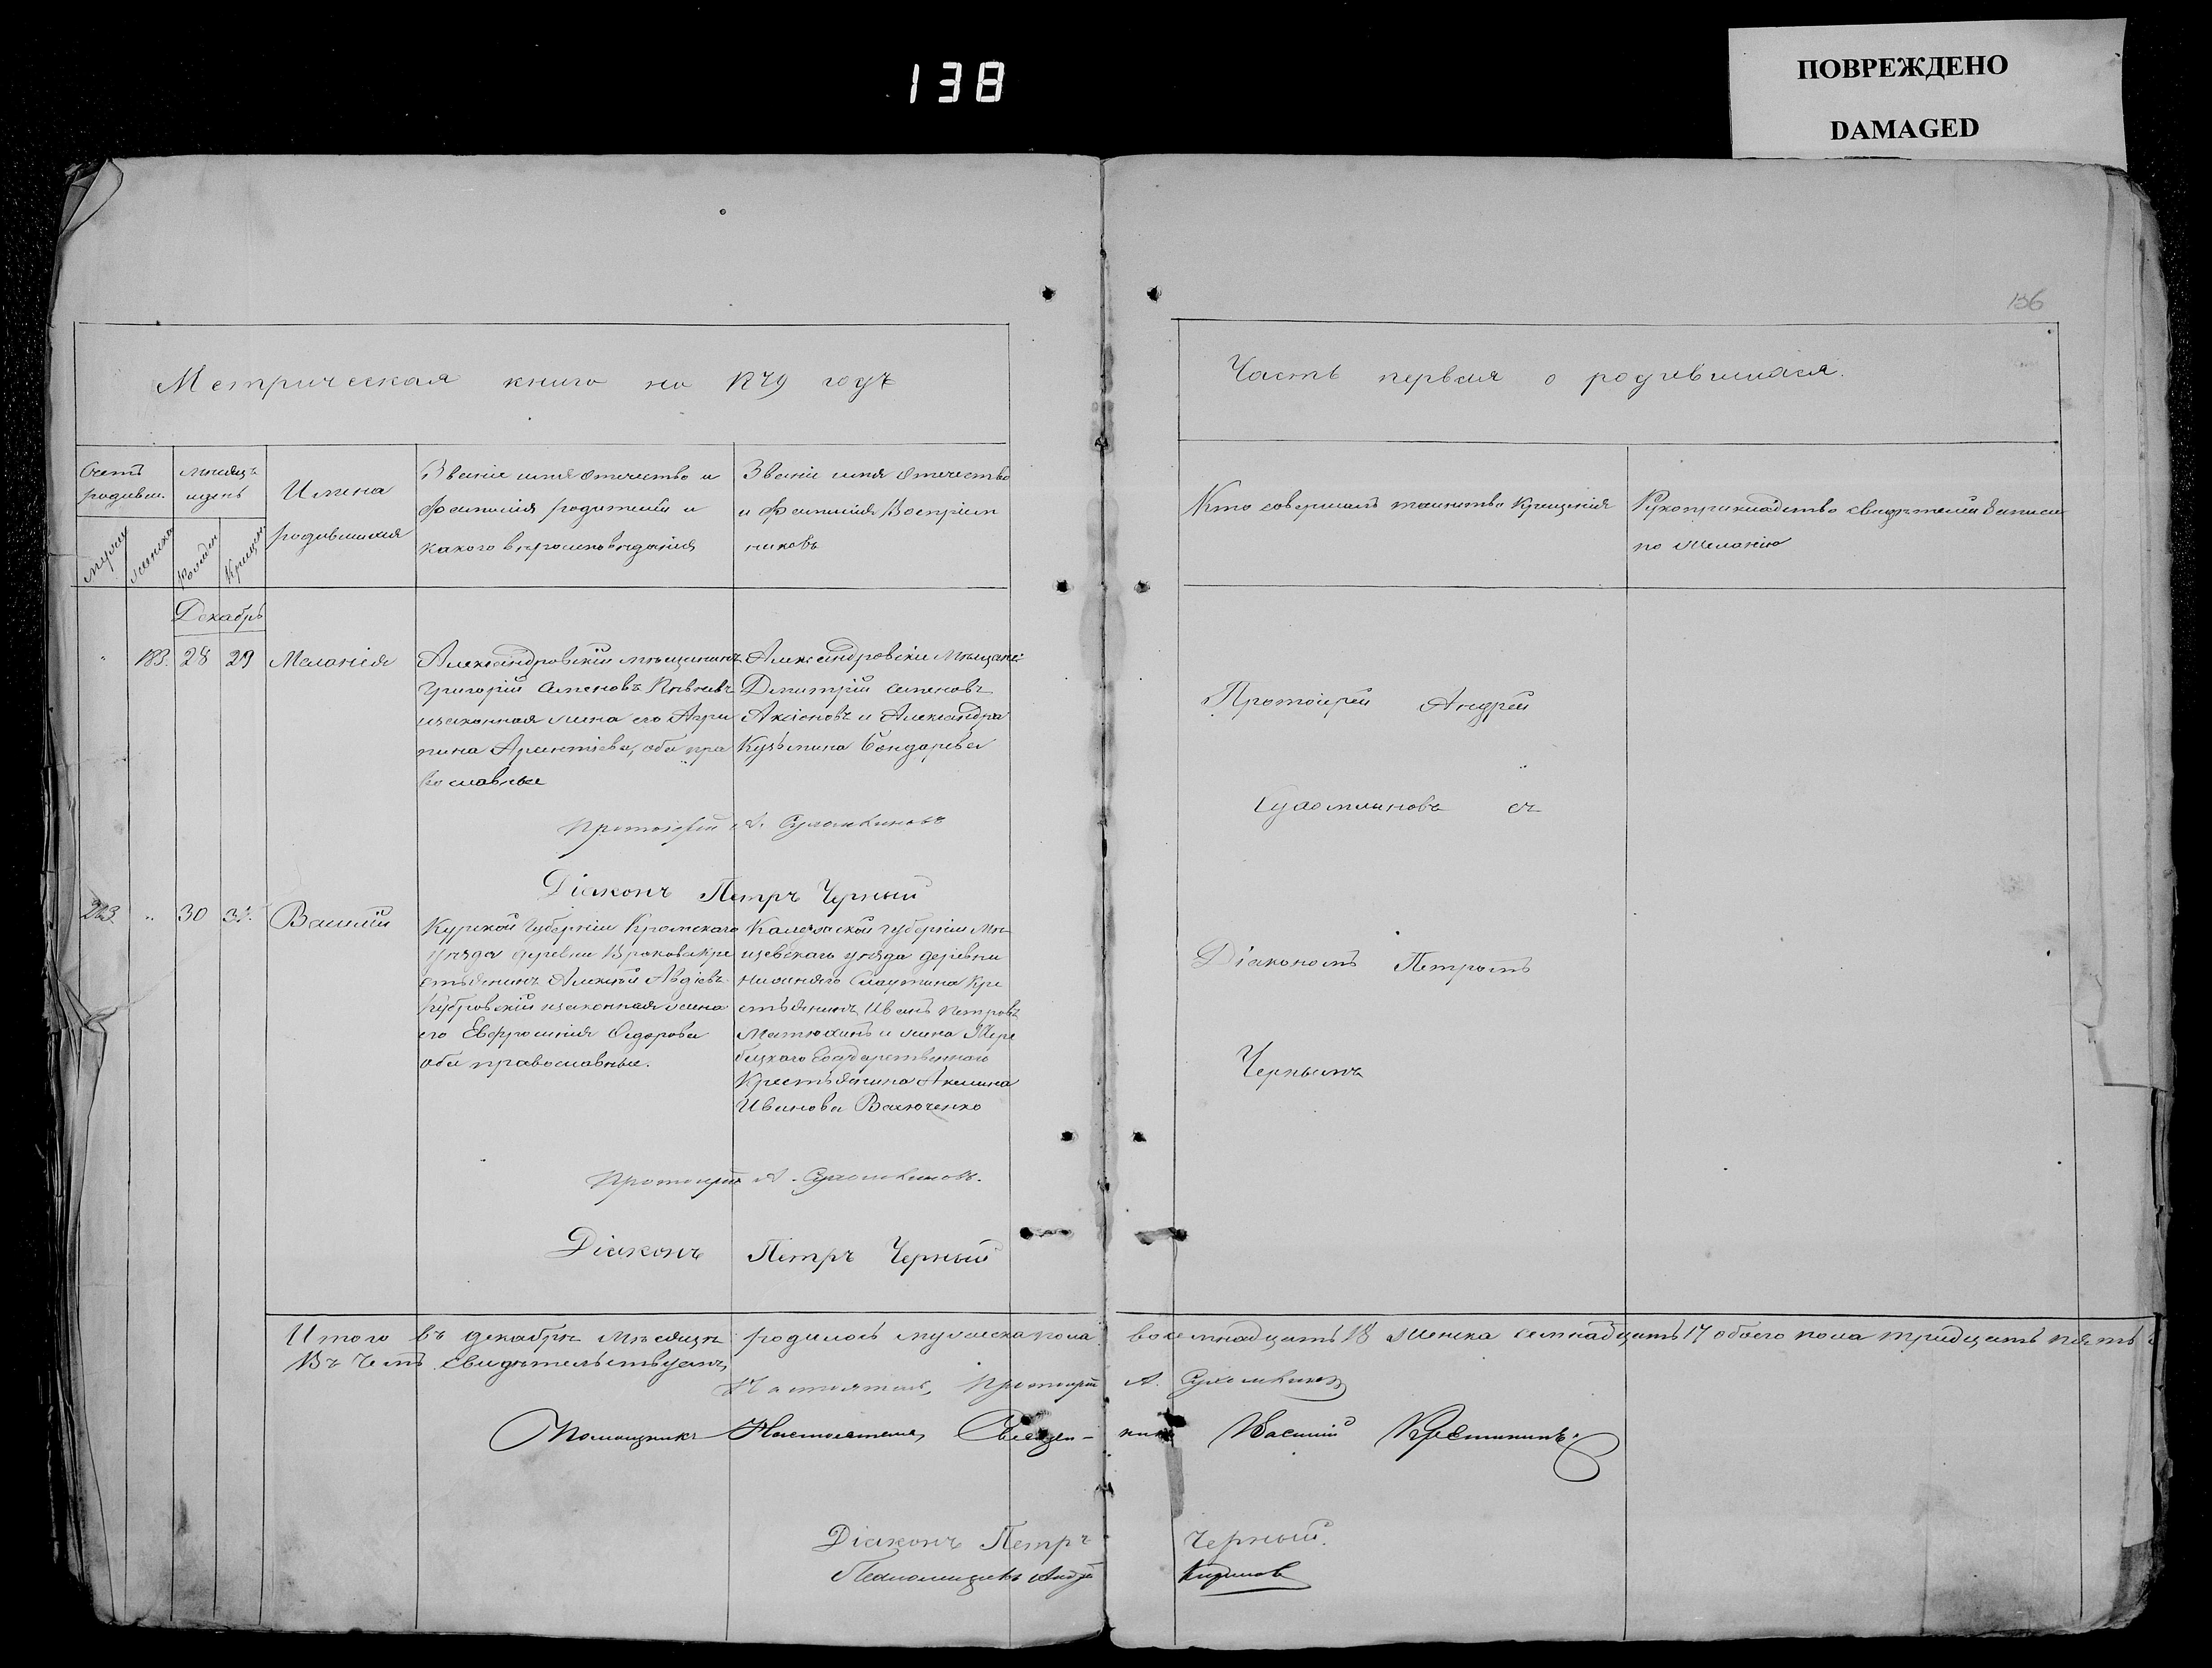 138
ПОВРЕЖДЕНО
DAMAGED
136
Метрическая книга на 1879 годъ
Часть первая о родившихся.
Счетъ родивш.
мужска
женска
мѣсяцъ и день
рожден
крещен
Имена
родившихся
Званіе имя отечество и
фамилія родителей и
какого вѣроисповѣданія
Званіе имя отечество
и фамилія Воспріем
никовъ
Кто совершалъ таинство Крещенія
Рукоприкладство свидѣтелей записи
по желанію
Декабрь
" 183. 28 29 Меланія
Александровскій мѣщанинъ
Григорій Семеновъ
и законная жена его Агри
пина Арентіева, оба пра
вославные
Александровскіе Мѣщане:
Дмитрій Семеновъ
Аксіоновъ и Александра
Кузьмина Бондарева
Протоіерей Андрей
Сухомлиновъ съ
Діакономъ Петромъ
Чернымъ
Протоіерей А. Сухомлиновъ
Діаконъ Петръ Черный
203. " 30 31. Василій
Курской Губерніи Кромскаго
уѣзда деревни кре
стьянинъ Алексѣй Авдіевъ
и законная жена
его Евфросинія Сидорова
оба православные.
Калужской губерніи Мѣ
щевскаго уѣзда деревни
Нижняго кре
стьянинъ Иванъ Петровъ
Матюхинъ и жена Жере
бецкаго Государственнаго
Крестьянина Акилина
Иванова
Протоіерей А. Сухомлиновъ.
Діаконъ Петръ Черный
Итого въ декабрѣ мѣсяцѣ родилось мужеска пола восемнадцать 18 женска семнадцать 17 обоего пола тридцать пять
Въ чемъ свидѣтельствуемъ,
Настоятель, Протоіерей А. Сухомлиновъ
Помощникъ Настоятеля, Священникъ Василій
Діаконъ Петръ Черный.
Псаломщикъ Андрей